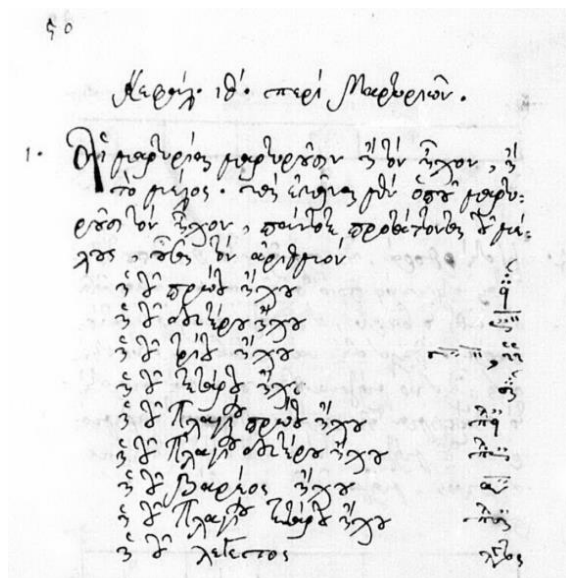 50
Κεφάλ. ιθ΄. περὶ Μαρτυριῶν.
1. Αἱ μαρτυρίαι μαρτυροῦσιν ἢ τὸν ἦχον, ἢ
τὸ μέλος. καὶ ἐκεῖναι μὲν ὁποῦ μαρτυ-
ροῦσι τὸν ἦχον, πάντοτε προβάλονται τοῦ μέ-
λους, οὖσαι τὸν ἀριθμὸν
ἡ τοῦ πρώτου ἤχου
ἡ τοῦ δευτέρου ἤχου
ἡ τοῦ τρίτου ἤχου
ἡ τοῦ τετάρτου ἤχου
ἡ τοῦ Πλαγίου πρώτου ἤχου
ἡ τοῦ Πλαγίου δευτέρου ἤχου
ἡ τοῦ Βαρέος ἤχου
ἡ τοῦ Πλαγίου τετάρτου ἤχου
ἡ τοῦ λεγετος